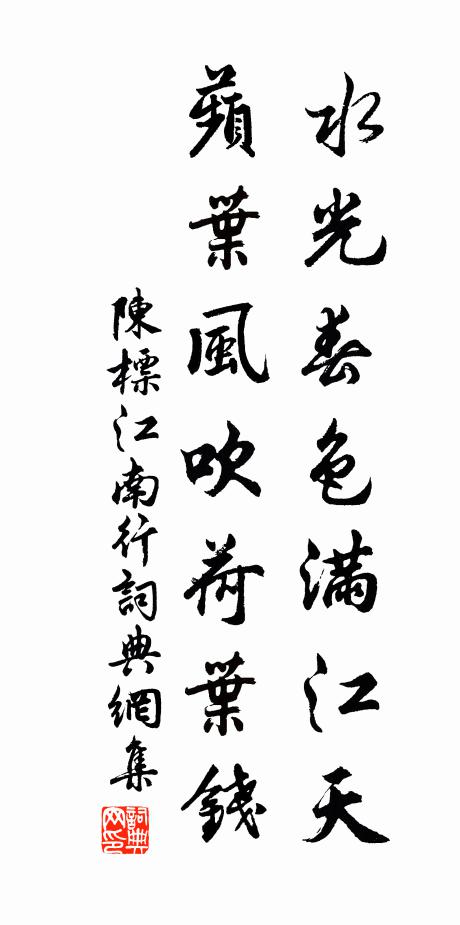 水光春色滿江天
蘋葉風吹荷葉錢
陳標江南行詞典網集
詞典网印